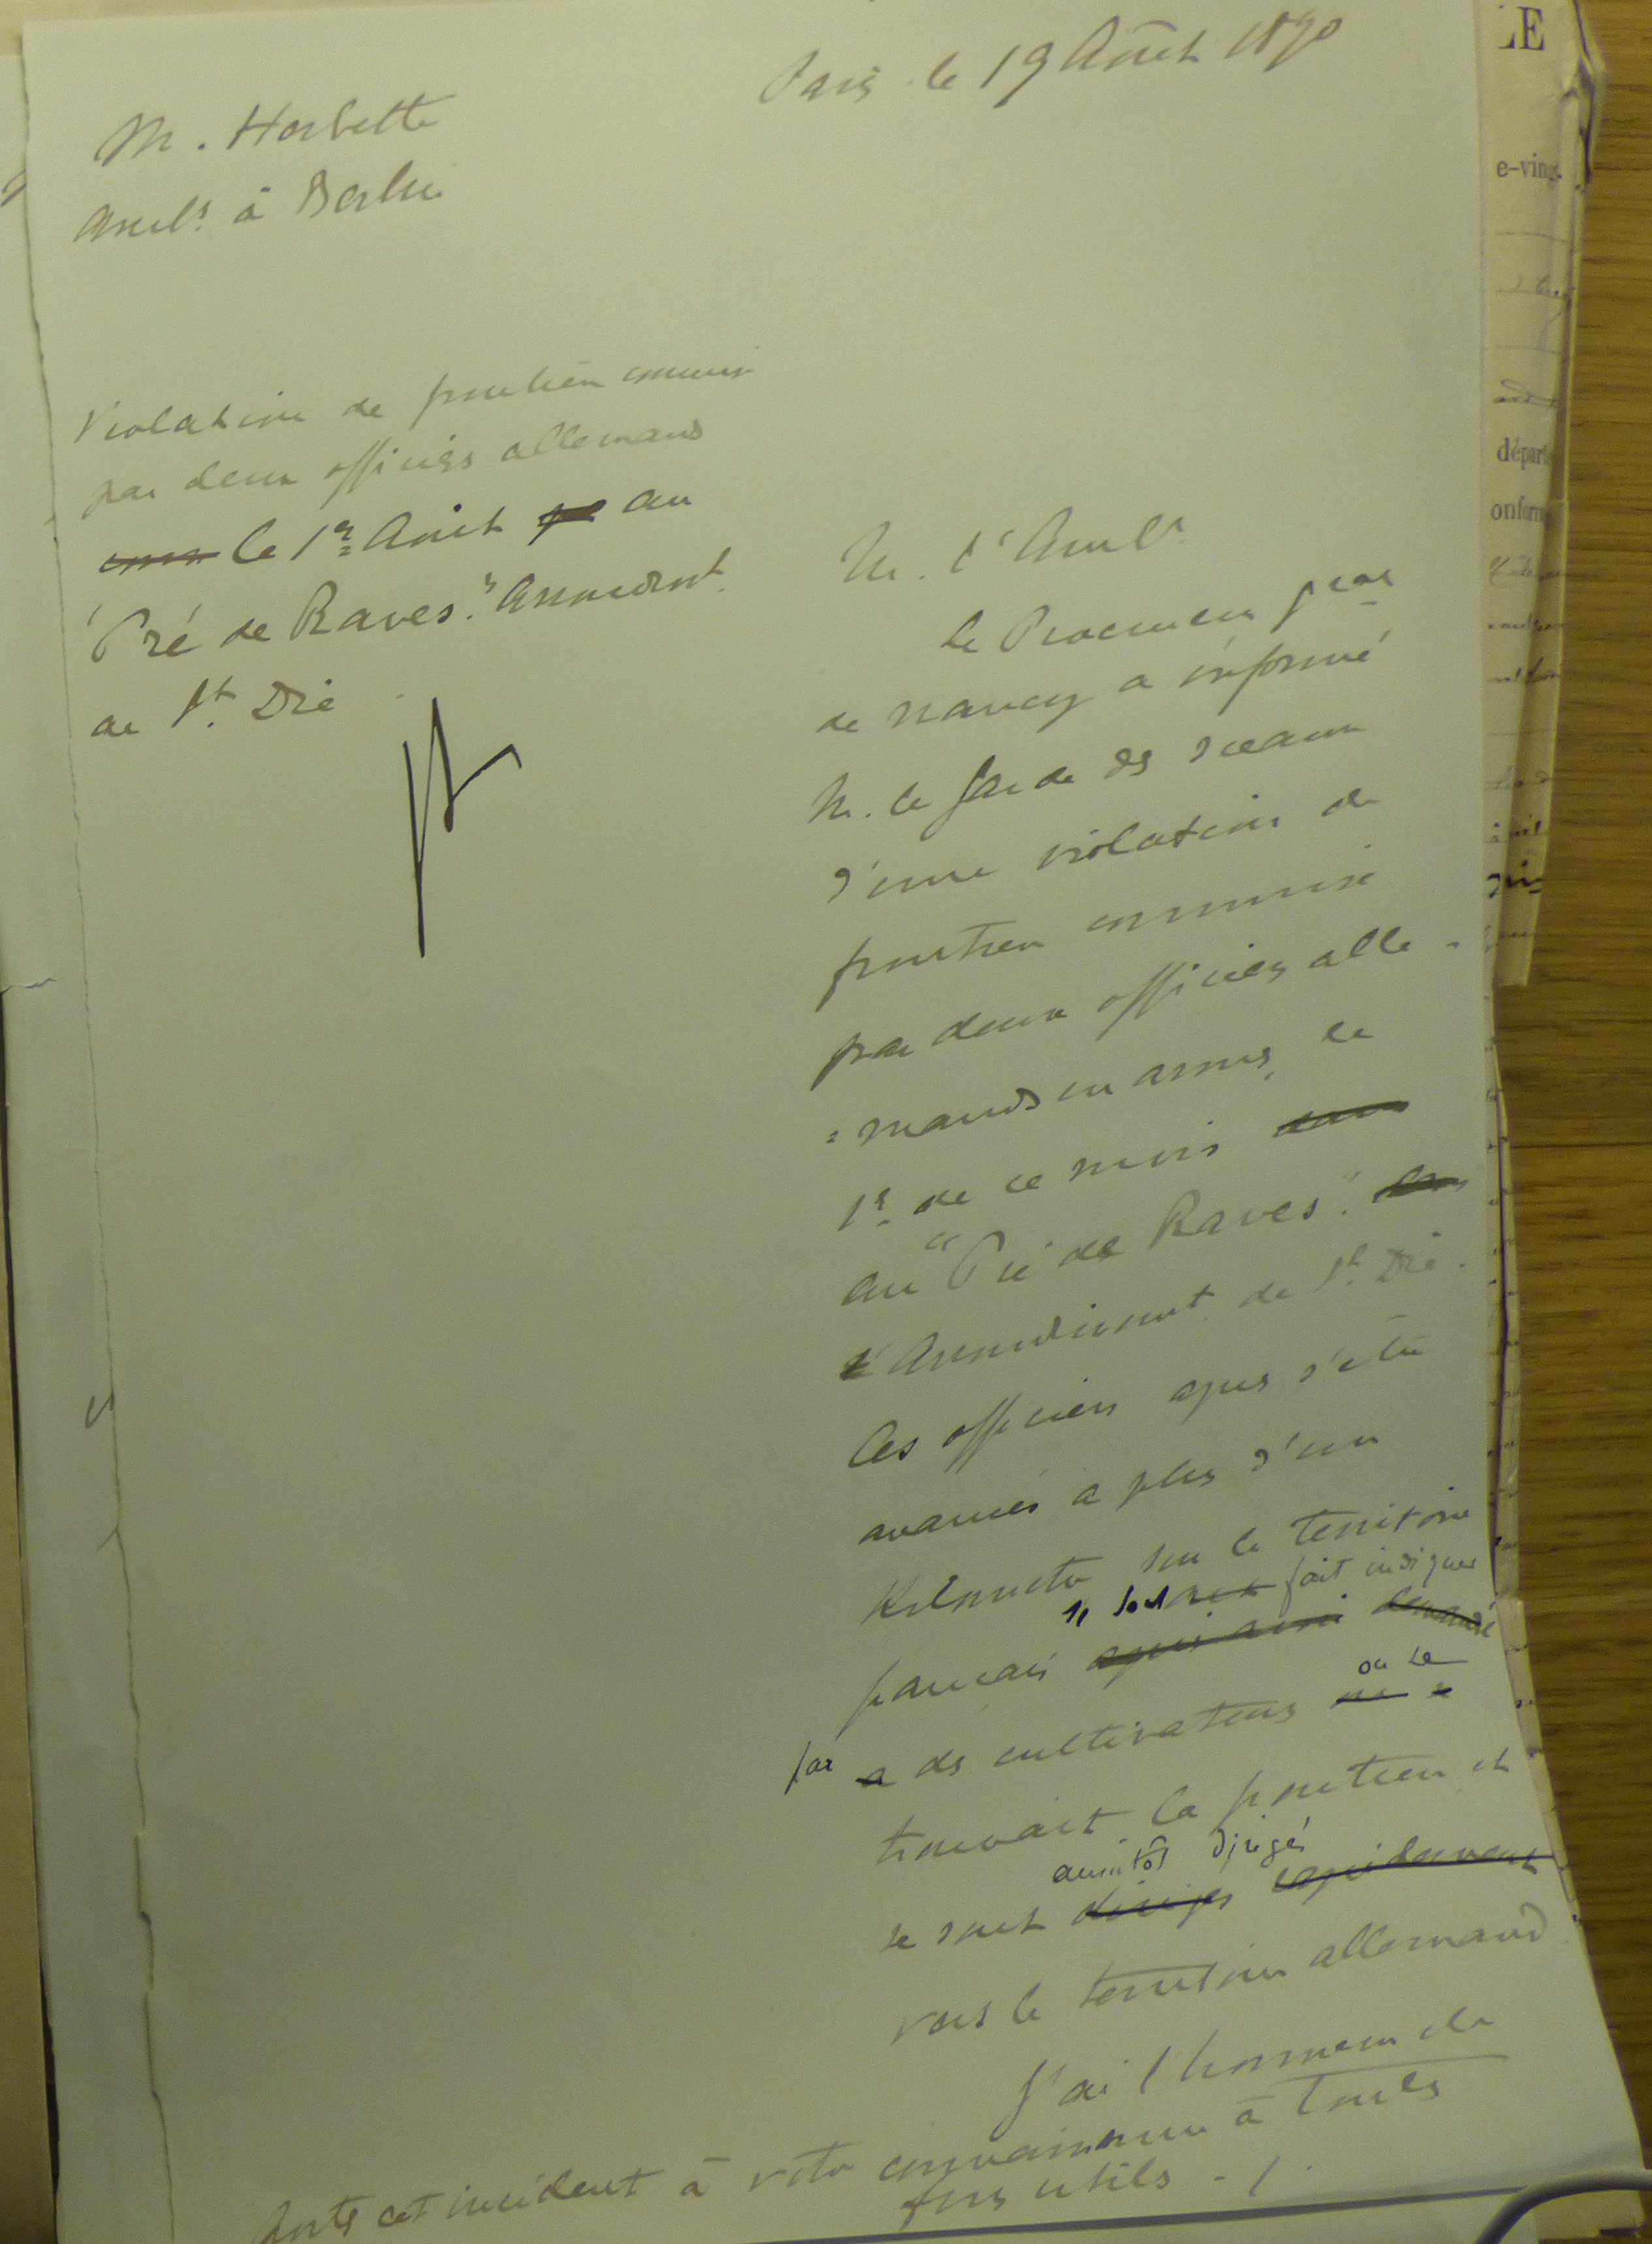 Paris le 19 Août 1890
M. Herbette
Ambr à Berlin
Violation de frontière commise
par deux officiers allemands
le 1er Août au
"Pré de Raves." Arrondist
de St. Dié
M. l'Ambr
Le Procureur gral
de Nancy a informé
M. le Garde des sceaux
d'une violation de
frontière commise
par deux officiers alle-
=mands en armes, le
1er de ce mois
au "Pré de Raves".
Arrondissement de St. Dié.
Ces officiers après s'être
avancés à plus d'un
kilomètre sur le territoire
se sont fait indiquer
français
par des cultivateurs où se
trouvait la frontière et
aussitôt dirigés
se sont dirigés rapidement
vers le territoire allemand
J'ai l'honneur de
porter cet incident à votre connaissance à toutes
fins utiles ./.
LE
e-ving
dépar
onform